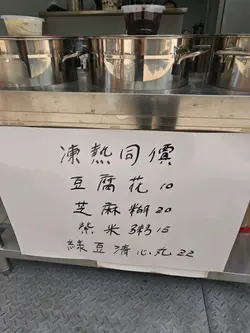 凍熱同價
豆腐花 10
芝麻糊 20
紫米粥 15
綠豆清心丸 22